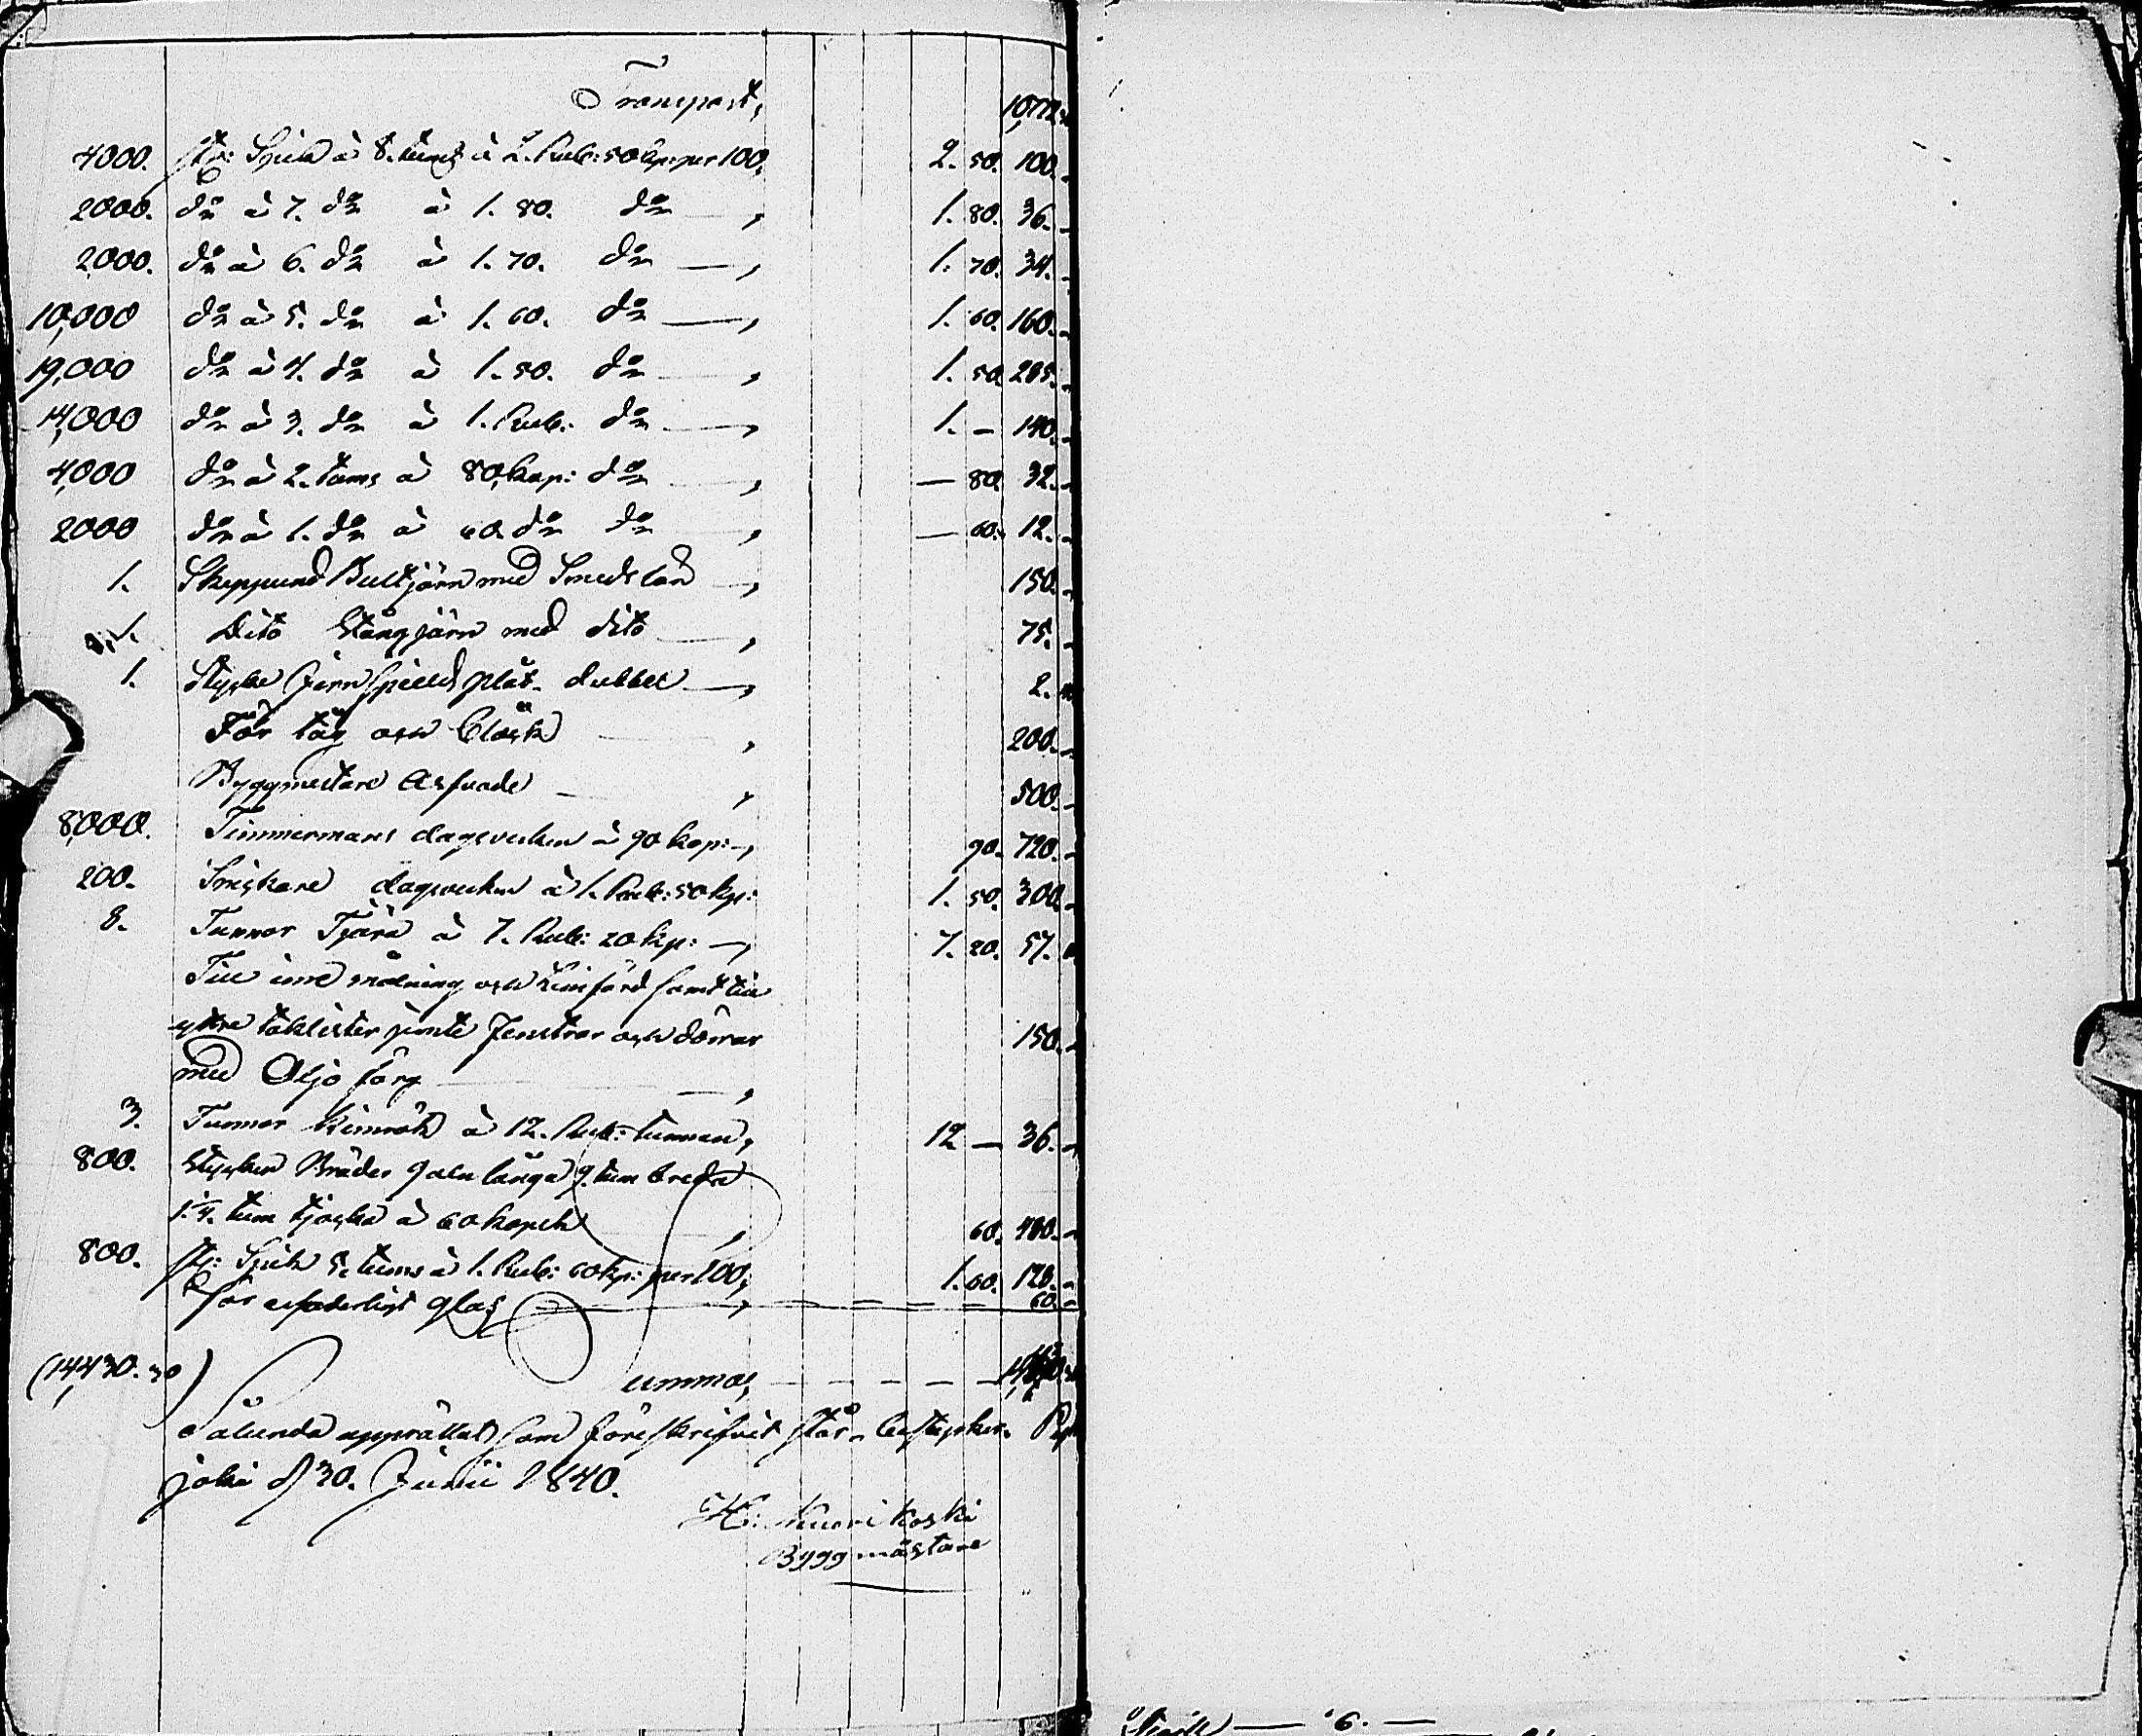 Transport,
4000. st: Spik à 8. tums à 2. Rub: 50 kp: per 100, 2. 50. 100.
2000. do à 7. do à 1. 80. do —, 1. 80. 36.
2000. do à 6. do à 1. 70. do —, 1. 70. 34.
10,000 do à 5. do à 1. 60. do —, 1. 60. 160.
19,000 do à 4. do à 1. 50. do —, 1. 50. 285.
14,000 do à 3. do à 1. Rub: do —, 1. — 140.
4,000 do à 2. tums à 80, kop: do —, — 80. 32.
2000 do à 1. do à 60. do do —, — 60. 12.
1. Skeppund Bultjärn med Smeds lön —, 150.
1. Dito Stångjärn med dito —, 75.
1. Stycke Jern Spiells plåt dubbel —, 2.
För tåg och Bläck —, 200.
Byggmestare Arfvode —, 500.
8,000. Timmermans dagsverken à 90 kop: —, 90. 720.
200. Snickare dagsverken à 1. Rub: 50 kp: 1. 50. 300.
8. Tunnor Tjära à 7. Rub: 20 kp: —, 7. 20. 57.
Till inre målning och Limfärg samt till
yttre taklister jemte Fenstrar och dörrar 150.
med Oljo färg —,
3. Tunnor Kimrök à 12. Rub: tunnan, 12 — 36.
800. Stycken Bräder 9 aln långa 9. tum breda
1 1/4. tum tjocka à 60 kopek —, 60. 480.
800. st: Spik 5. tums à 1. Rub: 60 kp: per 100, 1. 60. 128.
för erforderligt glas —, 60.
(14,430. 30) Summa,
Sålunda upprättat som föreskrifvit står, bestyrker.
joki d 30. Junii 1840.
H: Kuorikoski
Byggmästare
6.